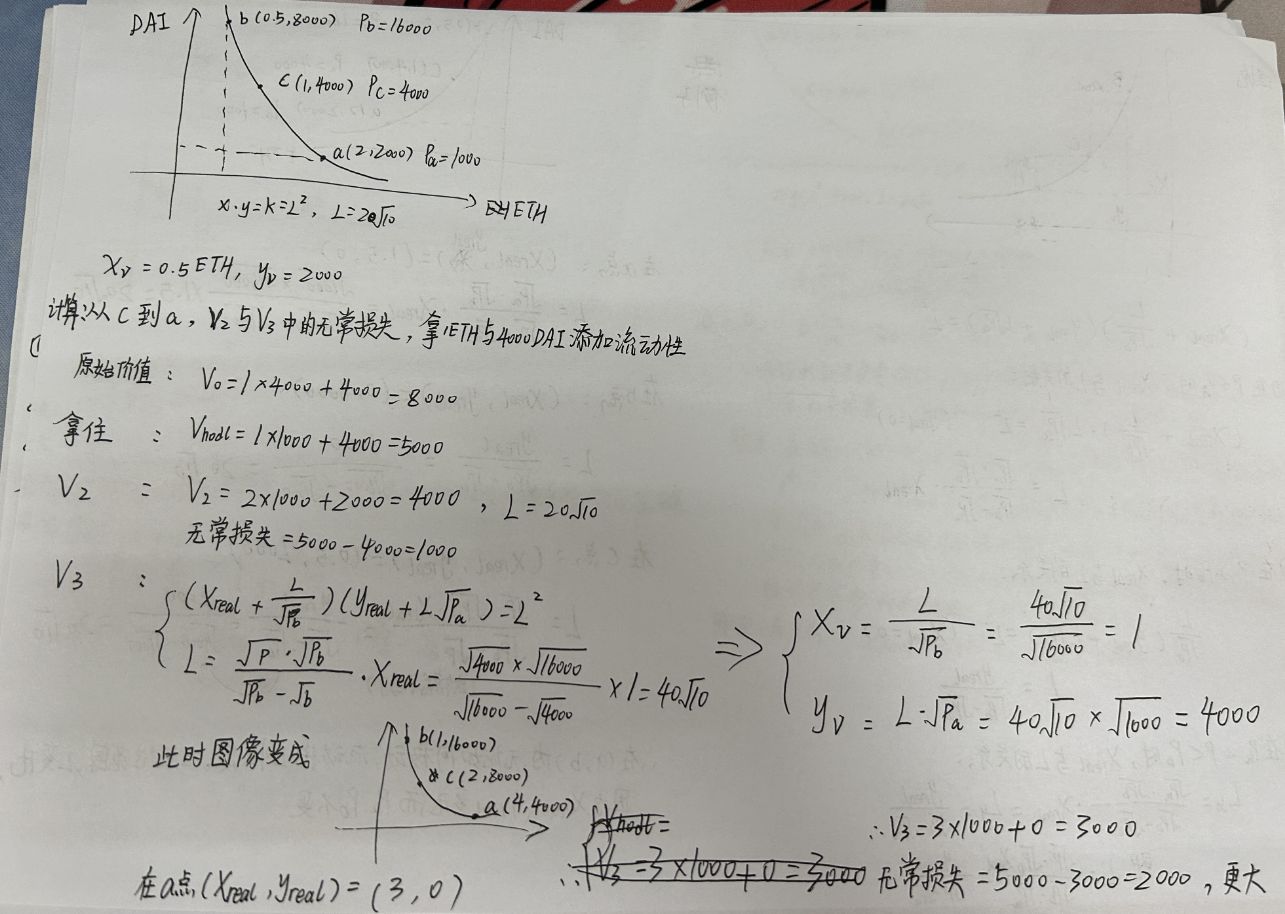 DAI
b(0.5,8000) Pb=16000
c(1,4000) Pc=4000
a(2,2000) Pa=1000
ETH
x·y=k=L², L=20√10
Xv=0.5ETH, yv=2000
计算从C到a，V2与V3中的无常损失，拿1ETH与4000DAI添加流动性
原始价值： V0=1×4000+4000=8000
拿住 ： Vhodl=1×1000+4000=5000
V2 ： V2=2×1000+2000=4000 , L=20√10
无常损失=5000-4000=1000
V3 ：
(Xreal+L/√Pb)(yreal+L√Pa)=L²
L=(√P·√Pb)/(√Pb-√b)·Xreal=(√4000×√16000)/(√16000-√4000)×1=40√10
=> Xv=L/√Pb=40√10/√16000=1
yv=L·√Pa=40√10×√1000=4000
此时图像变成
b(1,16000)
c(2,8000)
a(4,4000)
在a点(Xreal,yreal)=(3,0)
Vhodl=
∴ V3=3×1000+0=3000
∴V3=3×1000+0=3000
无常损失=5000-3000=2000，更大